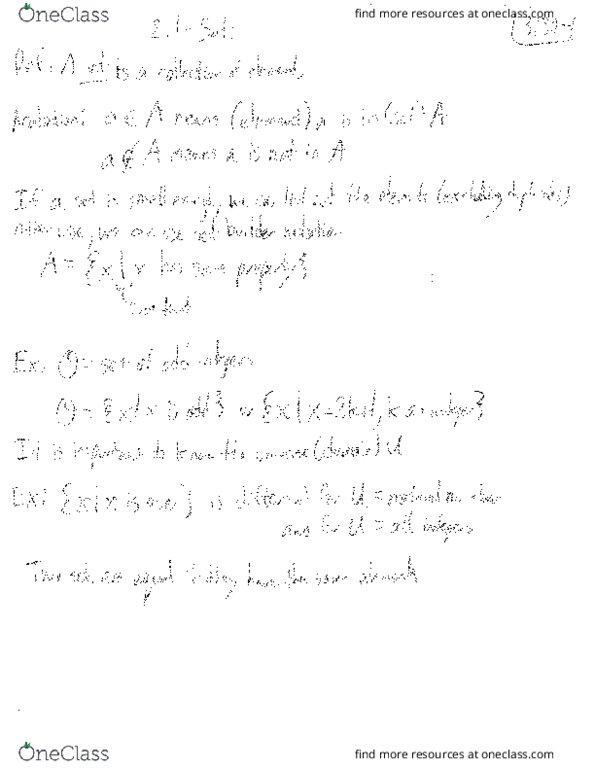 OneClass
find more resources at oneclass.com
2.1 - Sets
Def: A set is a collection of elements
Notation: a ∈ A means (element) a is in (set) A
a ∉ A means a is not in A
If a set is small enough, we can list out the elements (excluding duplicates)
otherwise, we can use set builder notation
A = {x | x has some property}
Ex: O = set of odd integers
O = {x | x is odd} or {x | x = 2k+1, k an integer}
It is important to know the universe (domain) U
Ex: {x | x is } is different for U = natural
and for U = all integers
Two sets are equal if they have the same elements
OneClass
find more resources at oneclass.com